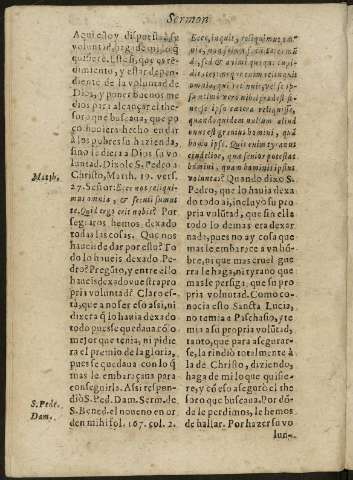 Sermon
Aqui estoy dispuesta, su
voluntad, haga de mi lo q̃
quisiere. Este si, que es re-
dimiento, y estar depen-
diente de la voluntad de
Dios, y poner buenos me
dios para alcançar el the-
soro que buscaua, que po
co huuiera hecho en dar
à los pobres su hazienda,
sino le diera a Dios su vo
luntad. Dixole S. Pedro a
Christo, Matth. 19. vers.
27. Señor: Ecce nos reliqui-
mus omnia, & secuti sumus
te. Quid ergo erit nobis? Por
seguiros hemos dexado
todas las cosas. Que nos
haueis de dar por esto? To
do lo haueis dexado. Pe-
dro? Pregũto, y entre ello
haueis dexado vuestra pro
pria voluntad? Claro es-
tà, que a no ser esso assi, ni
dixera q̃ lo hauia dexado
todo pues se quedaua cõ lo
mejor que tenia, ni pidie
ra el premio de la gloria,
pues se quedaua con lo q̃
mas le embaraçaua para
conseguirla. Assi respon-
diò S. Ped. Dam. Serm. de
S. Bened. el noueno en or
den mihi fol. 167. col. 2.
Matth.
S. Pede.
Dam.
Ecce, inquit, reliquimus om-
nia, non solum
sed, & animi
quia
omnia, qui
se ipsum
quandoquidem nullum aliud
homini, quã
homo ipsi. Quit enim
eiudelior, qua senior potestas
homini, quam hominis ipsius
voluntas? Quando dixo S.
Pedro, que lo hauia dexa
do todo ai, incluyò su pro
pria volũtad, que sin ella
todo lo demas era dexar
nada, pues no ay cosa que
mas le embarace a vn hõ-
bre, ni que mas cruel gue
rra le haga, ni tyrano que
mas le persiga, que su pro
pria voluntad. Como co-
nocia esto Sancta Lucia,
no temia a Paschasio, te-
mia a su propria volũtad,
tanto, que para asegurar-
se, la rindiò totalmente à
la de Christo, diziendo,
haga de mi lo que quisie-
re, y cõ esso asegurò el the
soro que buscaua. Por dõ-
de le perdimos, le hemos
de hallar. Por hazer su vo
lun-